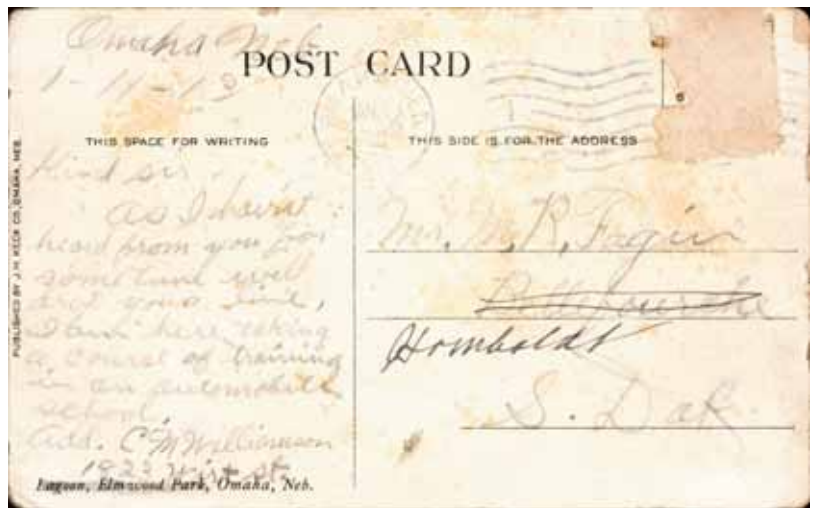 Omaha Neb
1-11-13
POST CARD
THIS SPACE FOR WRITING
THIS SIDE IS FOR THE ADDRESS
PUBLISHED BY J.H. KECK CO, OMAHA, NEB.
Kind sir.
As I havn't
heard from you for
sometime will
drop you a line,
I am here taking
a course of training
in an automobile
school,
Add. C M Williamson
1922 Wirt st
Lagoon, Elmwood Park, Omaha, Neb.
Mr. R. Fagin
Bellefourche
Homboldt
S. Dak.